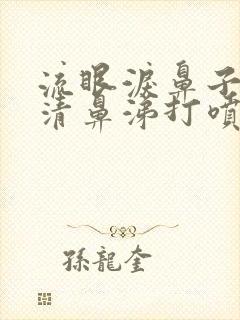 流眼淚鼻子
清鼻涕打噴
孫龍奎